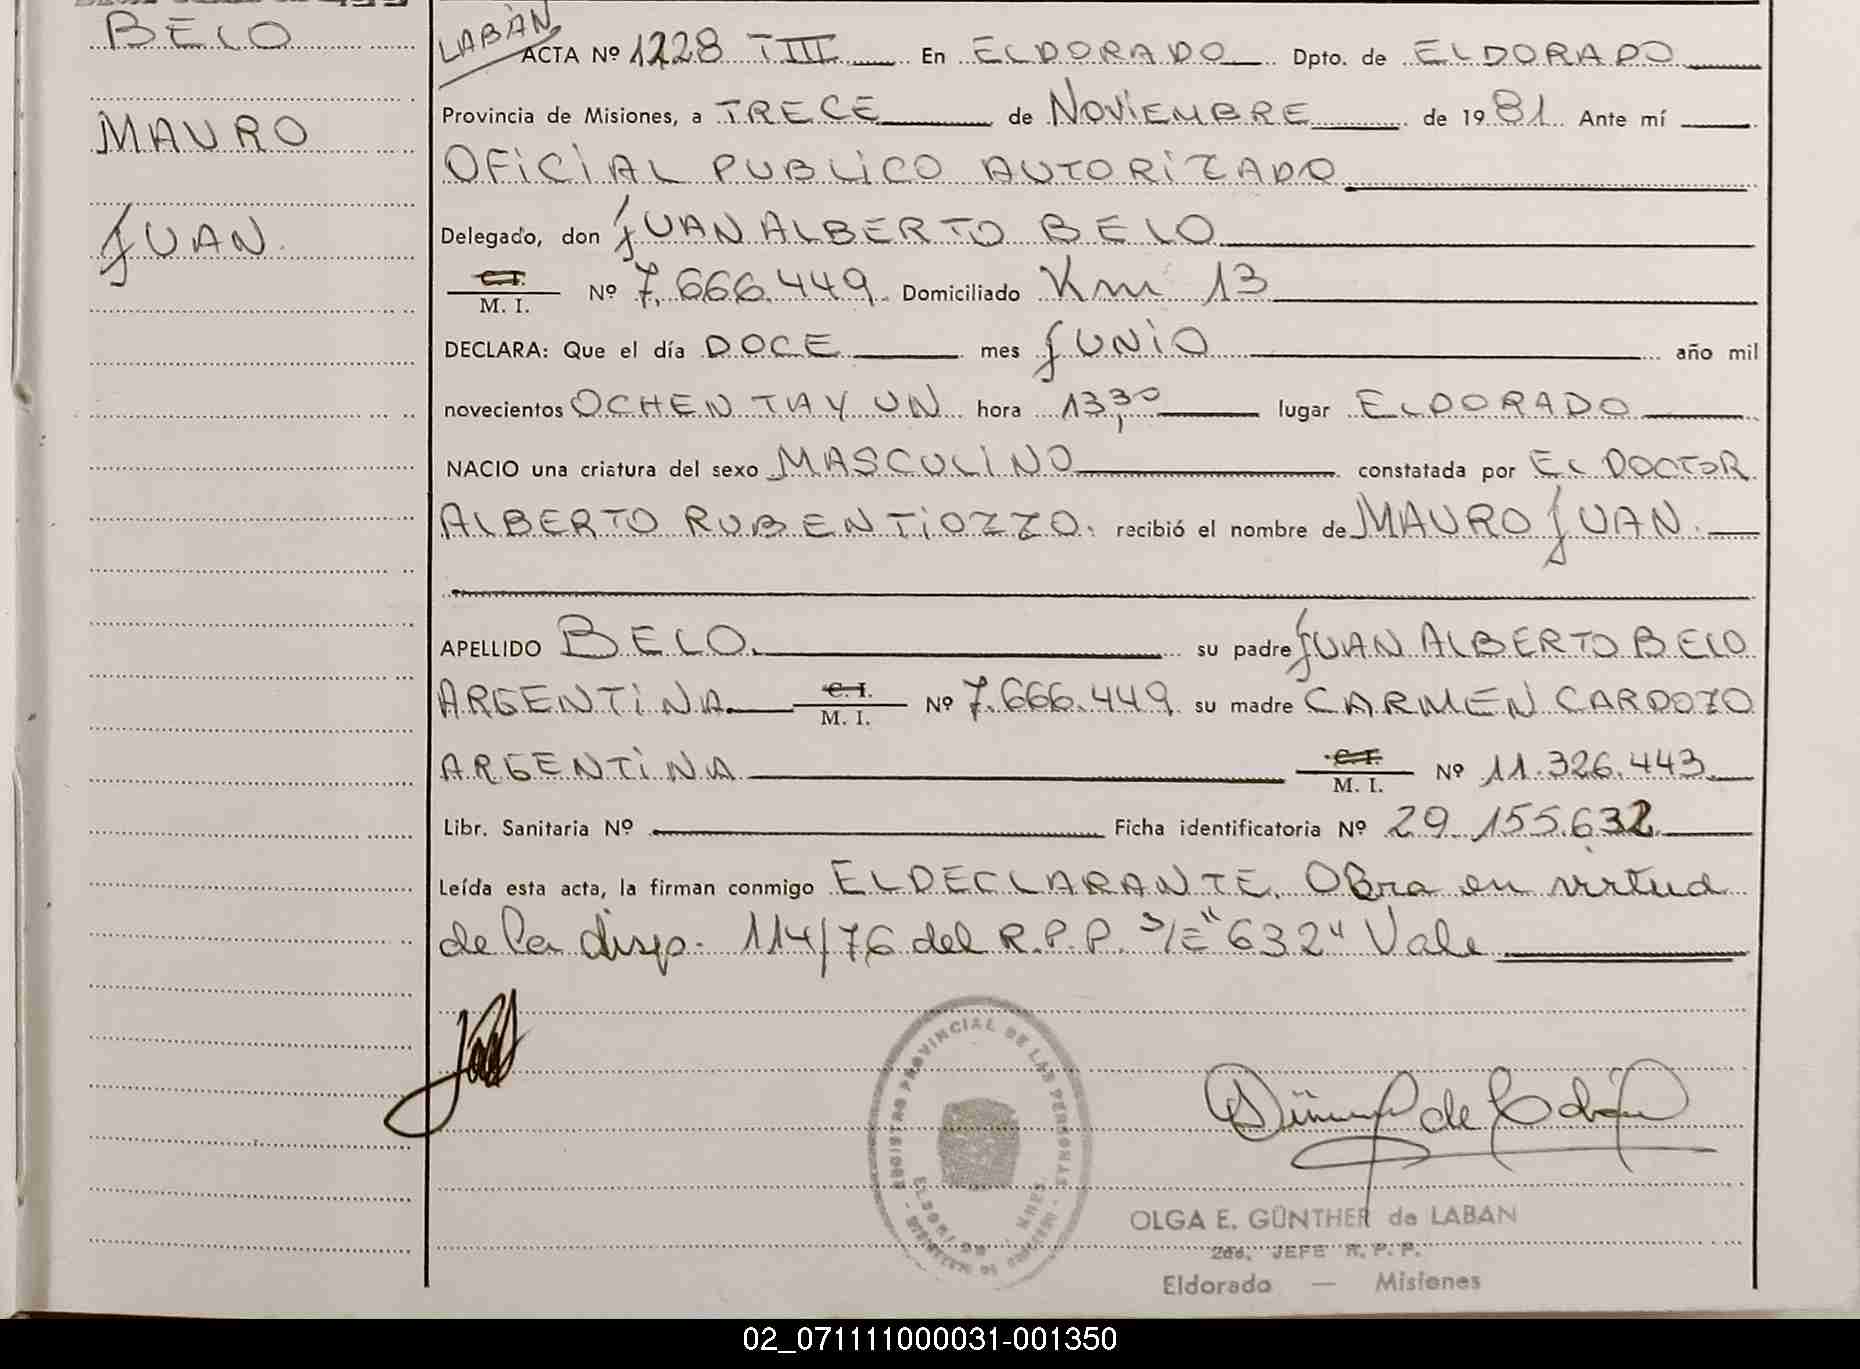 BELO
MAURO
JUAN.
LABÁN
ACTA Nº 1228 TIII En ELDORADO Dpto. de ELDORADO
Provincia de Misiones, a TRECE de NOVIEMBRE de 1981 Ante mí
OFICIAL PUBLICO AUTORIZADO
Delegado, don JUAN ALBERTO BELO
C.I.
M. I. Nº 7.666.449 Domiciliado Km 13
DECLARA: Que el día DOCE mes JUNIO año mil
novecientos OCHENTAY UN hora 13,30 lugar ELDORADO
NACIO una criatura del sexo MASCULINO constatada por EL DOCTOR
ALBERTO RUBEN TIOZZO. recibió el nombre de MAURO JUAN.
APELLIDO BELO. su padre JUAN ALBERTO BELO
ARGENTINA C. I.
M. I. Nº 7.666.449 su madre CARMEN CARDOZO
ARGENTINA C.I.
M. I. Nº 11.326.443
Libr. Sanitaria Nº Ficha identificatoria Nº 29.155.632
Leída esta acta, la firman conmigo EL DECLARANTE. Obra en virtud
de la disp. 114/76 del R.P.P. S/E "632" Vale
REGISTRO PROVINCIAL DE LAS PERSONAS
ELDORADO - MNES.
OLGA E. GÜNTHER de LABAN
2do. JEFE R. P. P.
Eldorado — Misiones
02_071111000031-001350